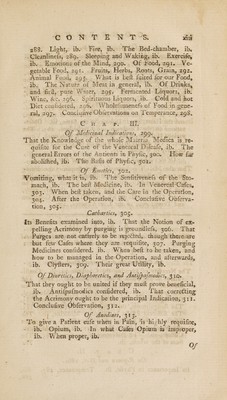 CONTENTS.
288. Light, ib. Fire, ib. The Bed-chamber, ib.
Cleanliness, 289. Sleeping and Waking, ib. Exercise,
ib. Emotions of the Mind, 290. Of Food, 291. Ve-
getable Food, 291. Fruits, Herbs, Roots, Grain, 292.
Animal Food, 293. What is best suited for our Food,
ib. The Nature of Meat in general, ib. Of Drinks,
and first, pure Water, 295. Fermented Liquors, ib.
Wine, &c. 296. Spirituous Liquors, ib. Cold and hot
Diet considered, 296. Wholesomeness of Food in gene-
ral, 297. Conclusive Observations on Temperance, 298.
CHAP. III.
Of Medicinal Indications, 299.
That the Knowledge of the whole Materia Medica is re-
quisite for the Cure of the Venereal Disease, ib. The
general Errors of the Antients in Physic, 300. How far
abolished, ib. The Basis of Physic, 302.
Of Emetics, 302.
Vomiting, what it is, ib. The Sensitiveness of the Sto-
mach, ib. The best Medicine, ib. In Venereal Cases,
303. When best taken, and the Care in the Operation,
304. After the Operation, ib. Conclusive Observa-
tion, 305.
Cathartics, 305.
Its Benefits examined into, ib. That the Notion of ex-
pelling Acrimony by purging is groundless, 306. That
Purges are not entirely to be rejected, though there are
but few Cases where they are requisite, 307. Purging
Medicines considered, ib. When best to be taken, and
how to be managed in the Operation, and afterwards,
ib. Clysters, 309. Their great Utility, ib.
Of Diuretics, Diaphoretics, and Antispasmodics, 310.
That they ought to be united if they must prove beneficial,
ib. Antispasmodics considered, ib. That correcting
the Acrimony ought to be the principal Indication, 311.
Conclusive Observation, 312.
Of Anodines, 313.
To give a Patient ease when in Pain, is highly requisite,
ib. Opium, ib. In what Cases Opium is improper,
ib. When proper, ib.
Of